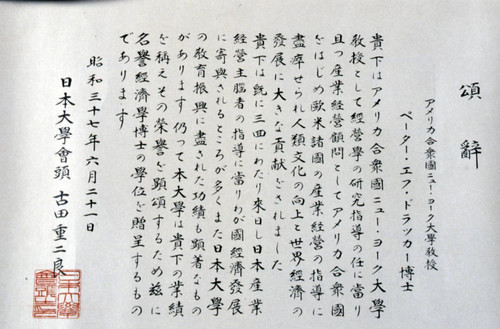 頌辭
アメリカ合衆國ニュー・ヨーク大學教授
ペーター・エフ・ドラッカー博士
貴下はアメリカ合衆國ニューヨーク大學
教授として経営學の研究指導の任に當り
且つ産業経営顧問としてアメリカ合衆國
をはじめ歐米諸國の産業経営の指導に
盡瘁せられ人類文化の向上と世界經濟の
發展に大きな貢献をされました
貴下は既に三回にわたり來日し日本産業
経営主脳者の指導に當りわが國經濟發展
に寄與されるところが多くまた日本大學
の教育振興に盡された功績も顕著なもの
があります 仍つて本大學は貴下の業績
を称えその榮譽を顕頌するため茲に
名譽経濟學博士の學位を贈呈するもの
であります
昭和三十七年六月二十一日
日本大學會頭 古田重二良